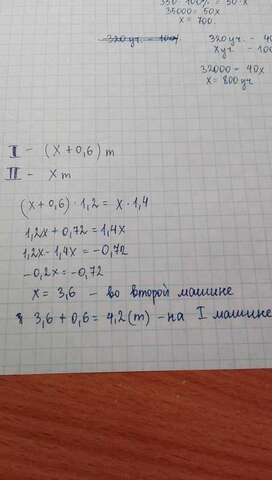 350 · 100% = 50 · x
35000 = 50x
x = 700.
320 уч. - 100%
320 уч. - 40
x уч. - 100
32000 = 40x
x = 800 уч
I - (x + 0,6) т
II - x т
(x + 0,6) · 1,2 = x · 1,4
1,2x + 0,72 = 1,4x
1,2x - 1,4x = -0,72
-0,2x = -0,72
x = 3,6 - во второй машине
3,6 + 0,6 = 4,2 (т) - на I машине